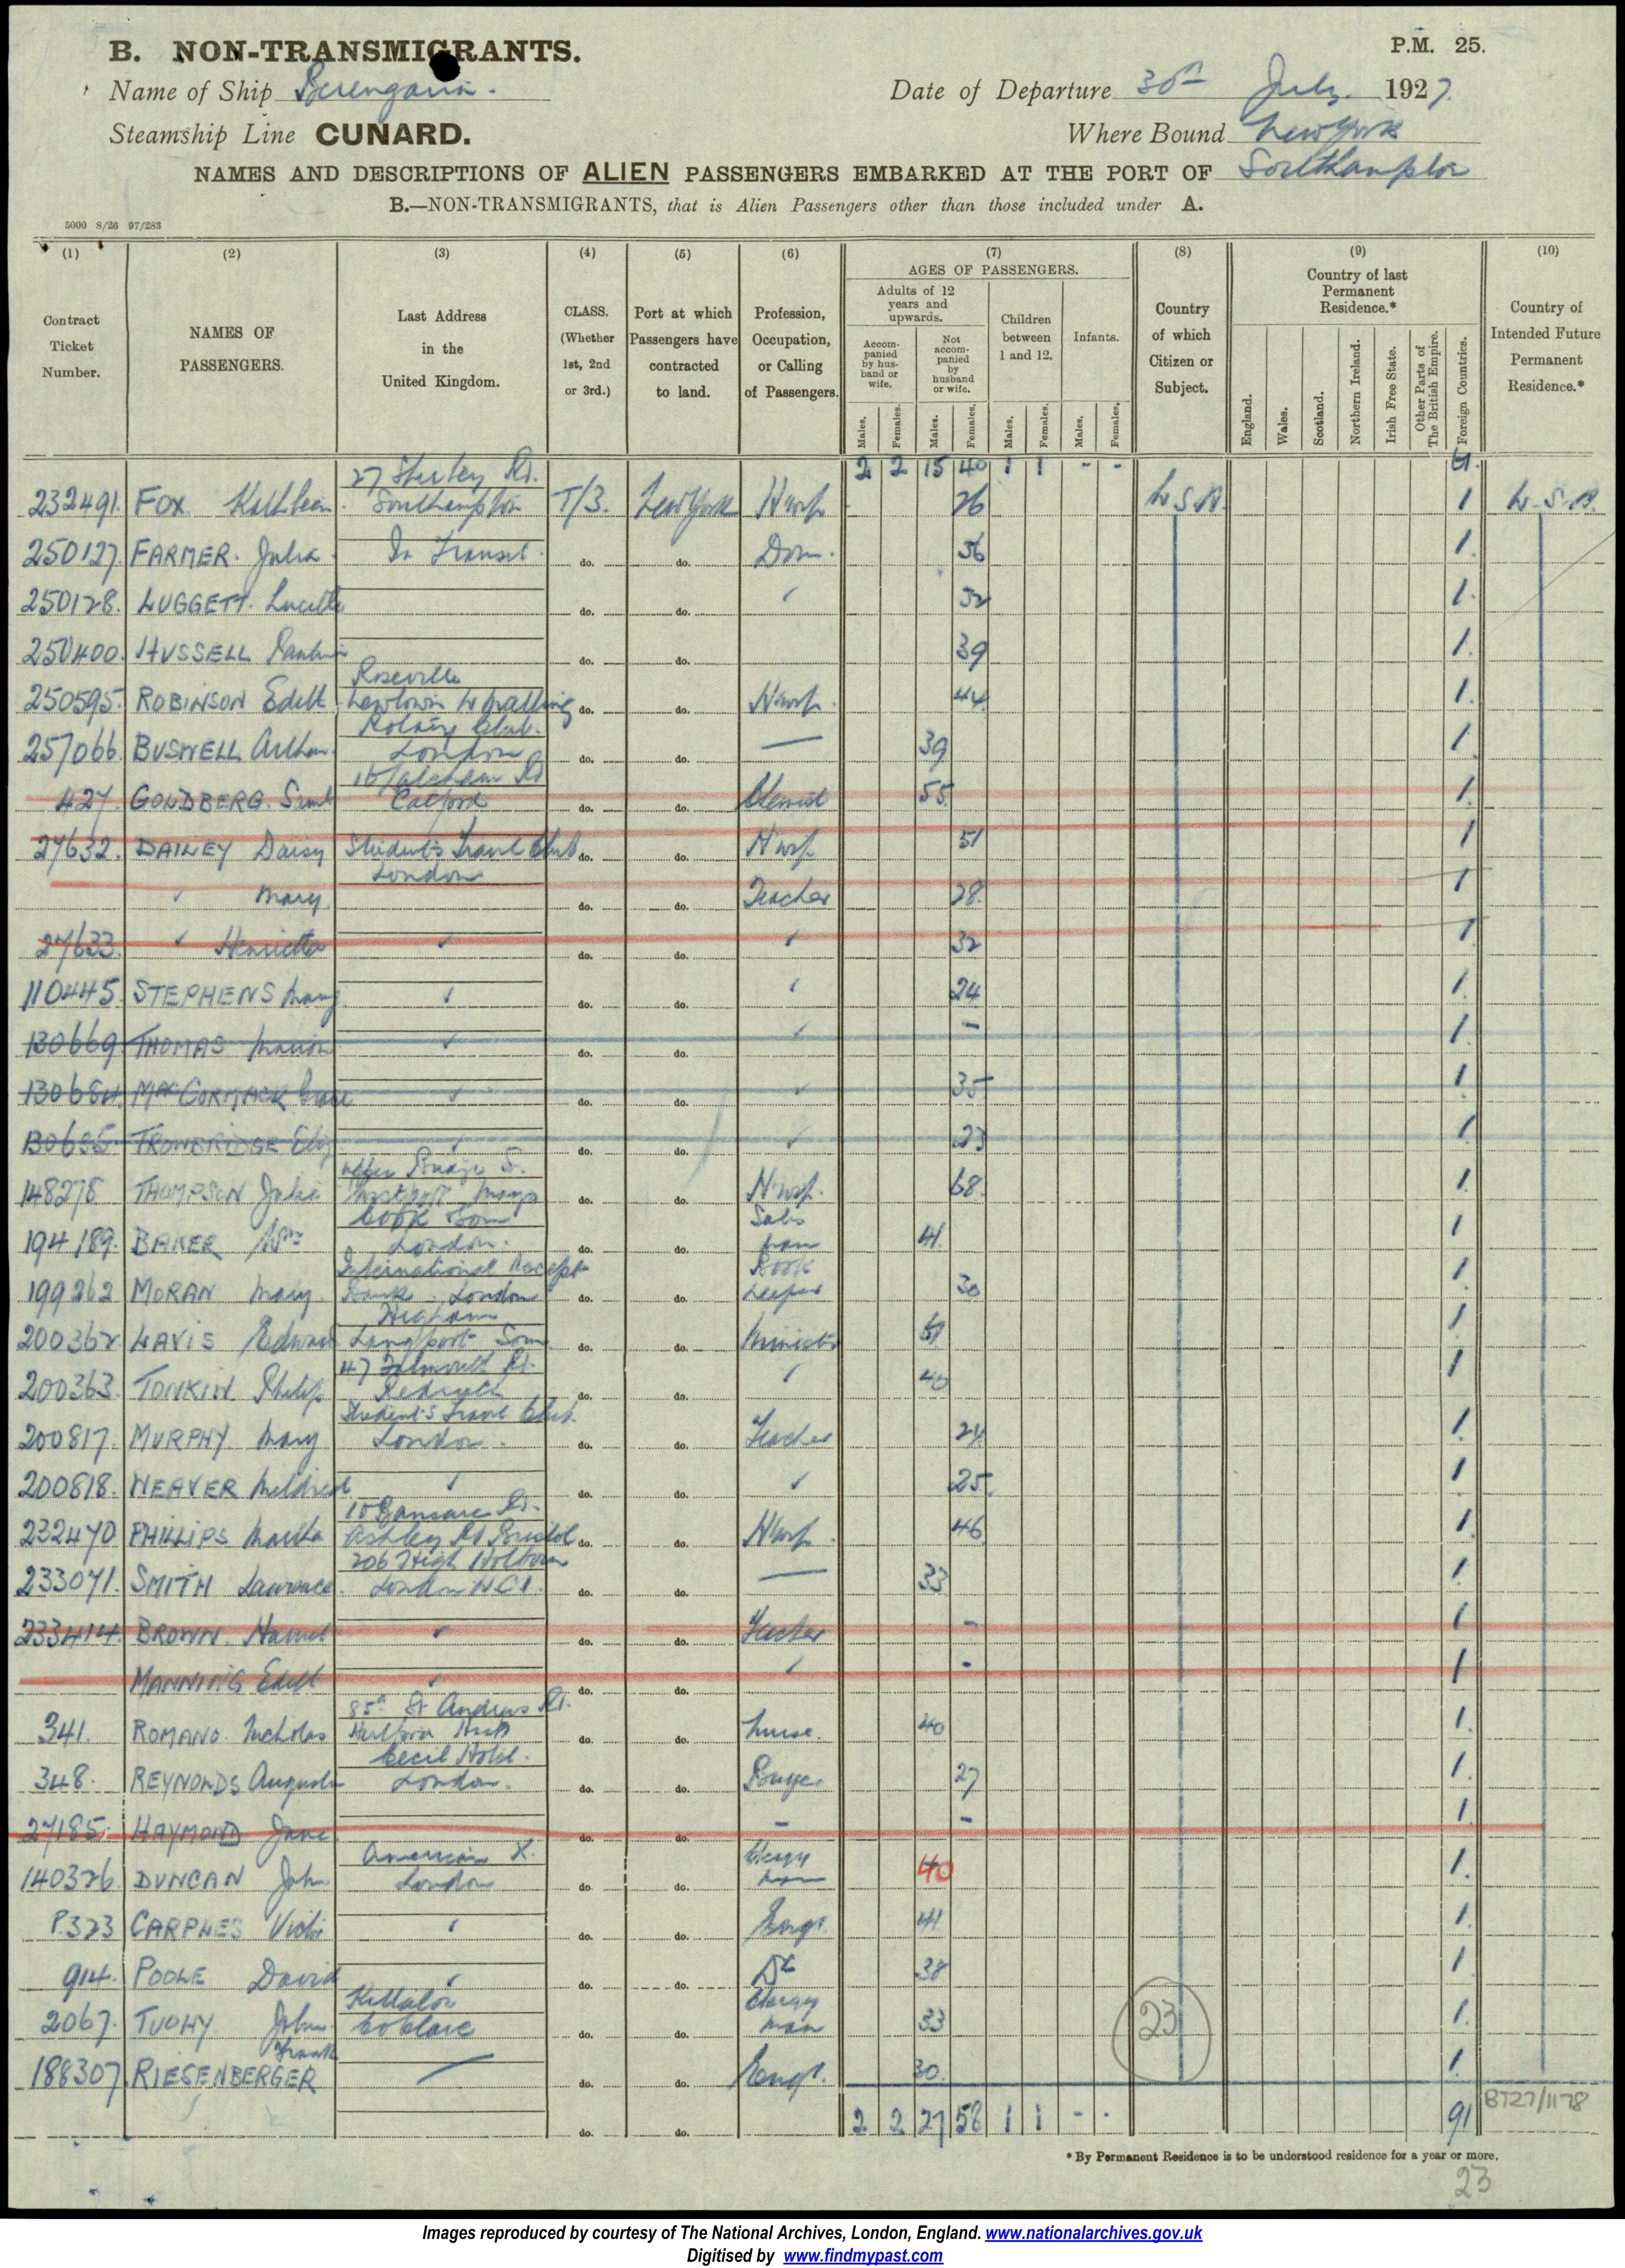 B. NON-TRANSMIGRANTS.
P.M. 25.
Name of Ship Berengaria.
Date of Departure 30th July 1927.
Steamship Line CUNARD.
Where Bound New York
NAMES AND DESCRIPTIONS OF ALIEN PASSENGERS EMBARKED AT THE PORT OF Southampton
B.—NON-TRANSMIGRANTS, that is Alien Passengers other than those included under A.
5000 8/26 97/283
(1) (2) (3) (4) (5) (6) (7) (8) (9) (10)
Contract Ticket Number.
NAMES OF PASSENGERS.
Last Address in the United Kingdom.
CLASS. (Whether 1st, 2nd or 3rd.)
Port at which Passengers have contracted to land.
Profession, Occupation, or Calling of Passengers.
AGES OF PASSENGERS.
Adults of 12 years and upwards.
Accompanied by husband or wife.
Not accompanied by husband or wife.
Children between 1 and 12.
Infants.
Males. Females. Males. Females. Males. Females. Males. Females.
Country of which Citizen or Subject.
Country of last Permanent Residence.*
England. Wales. Scotland. Northern Ireland. Irish Free State. Other Parts of The British Empire. Foreign Countries.
Country of Intended Future Permanent Residence.*
2 2 15 40 1 1 - - 61.
27 Shirley Rd.
232491. FOX Kathleen. Southampton T/3. New York Hwf. 26 U S A. 1 U.S.A.
250127. FARMER. Julia In Transit. do. do. Dom. 36 1.
250128. LUGGETT. Lucille do. do. 32 1.
250400. HUSSELL do. do. 39 1.
Roseville
250595. ROBINSON Edith do. do. Hwf. 44 1.
Rotary Club.
257066. BUSWELL Arthur. London do. do. — 39 1.
427. GOLDBERG. Catford do. do. Chemist 55. 1.
27632. DAILEY Daisy Students Travel Club do. do. Hwf. 51 1
London
" Mary. do. do. Teacher 28. 1
27633. " Henrietta " do. do. " 32 1
110445. STEPHENS Mary. " do. do. " 24 1.
130669 THOMAS Marion " do. do. " - 1.
130684. MacCORMACK Grace " do. do. " 35 1
130685. TROWBRIDGE Eliz " do. do. " 23 1
148278 THOMPSON Julia do. do. Hwf. 68. 1.
Cook Son Sales
194189. BAKER Wm London. do. do. man 41. 1
International Accept Book
199262 MORAN Mary. Bank. London do. do. keeper 30 1.
200362 LAVIS Edward Langport Som do. do. Minister 1.
47 Falmouth Rd.
200363. TONKIN Philip Redruth do. do. " 40 1
Students Travel Club.
200817. MURPHY Mary London. do. do. Teacher 24 1.
200818. WEAVER Mildred " do. do. " 25. 1
232470 PHILLIPS Martha Ashley Rd Bristol do. do. Hwf. 46 1.
206 High Holborn
233071. SMITH Lawrence. London W.C.1. do. do. — 33 1.
233414. BROWN. " do. do. Teacher - 1
MANNING Edith " do. do. " - 1
85a St Andrews Rd.
341. ROMANO. Nicholas do. do. Nurse. 40 1.
Cecil Hotel.
348. REYNOLDS Augusta London. do. do. Buyer 27 1.
27185. HAYMOND Jane. do. do. - - 1
American X. Clergy
140326. DUNCAN John London do. do. man 40 1.
P.323 CARPHES " do. do. Engr. 41 1.
914. POOLE David " do. do. Dr 38 1
Killaloe Clergy
2067. TUOHY John. Co Clare do. do. man 33 23 1.
Frank
188307. RIESENBERGER — do. do. Engr. 30. 1.
do. do. 2 2 27 58 1 1 - - 91 BT27/1178
* By Permanent Residence is to be understood residence for a year or more.
23
Images reproduced by courtesy of The National Archives, London, England. www.nationalarchives.gov.uk
Digitised by www.findmypast.com